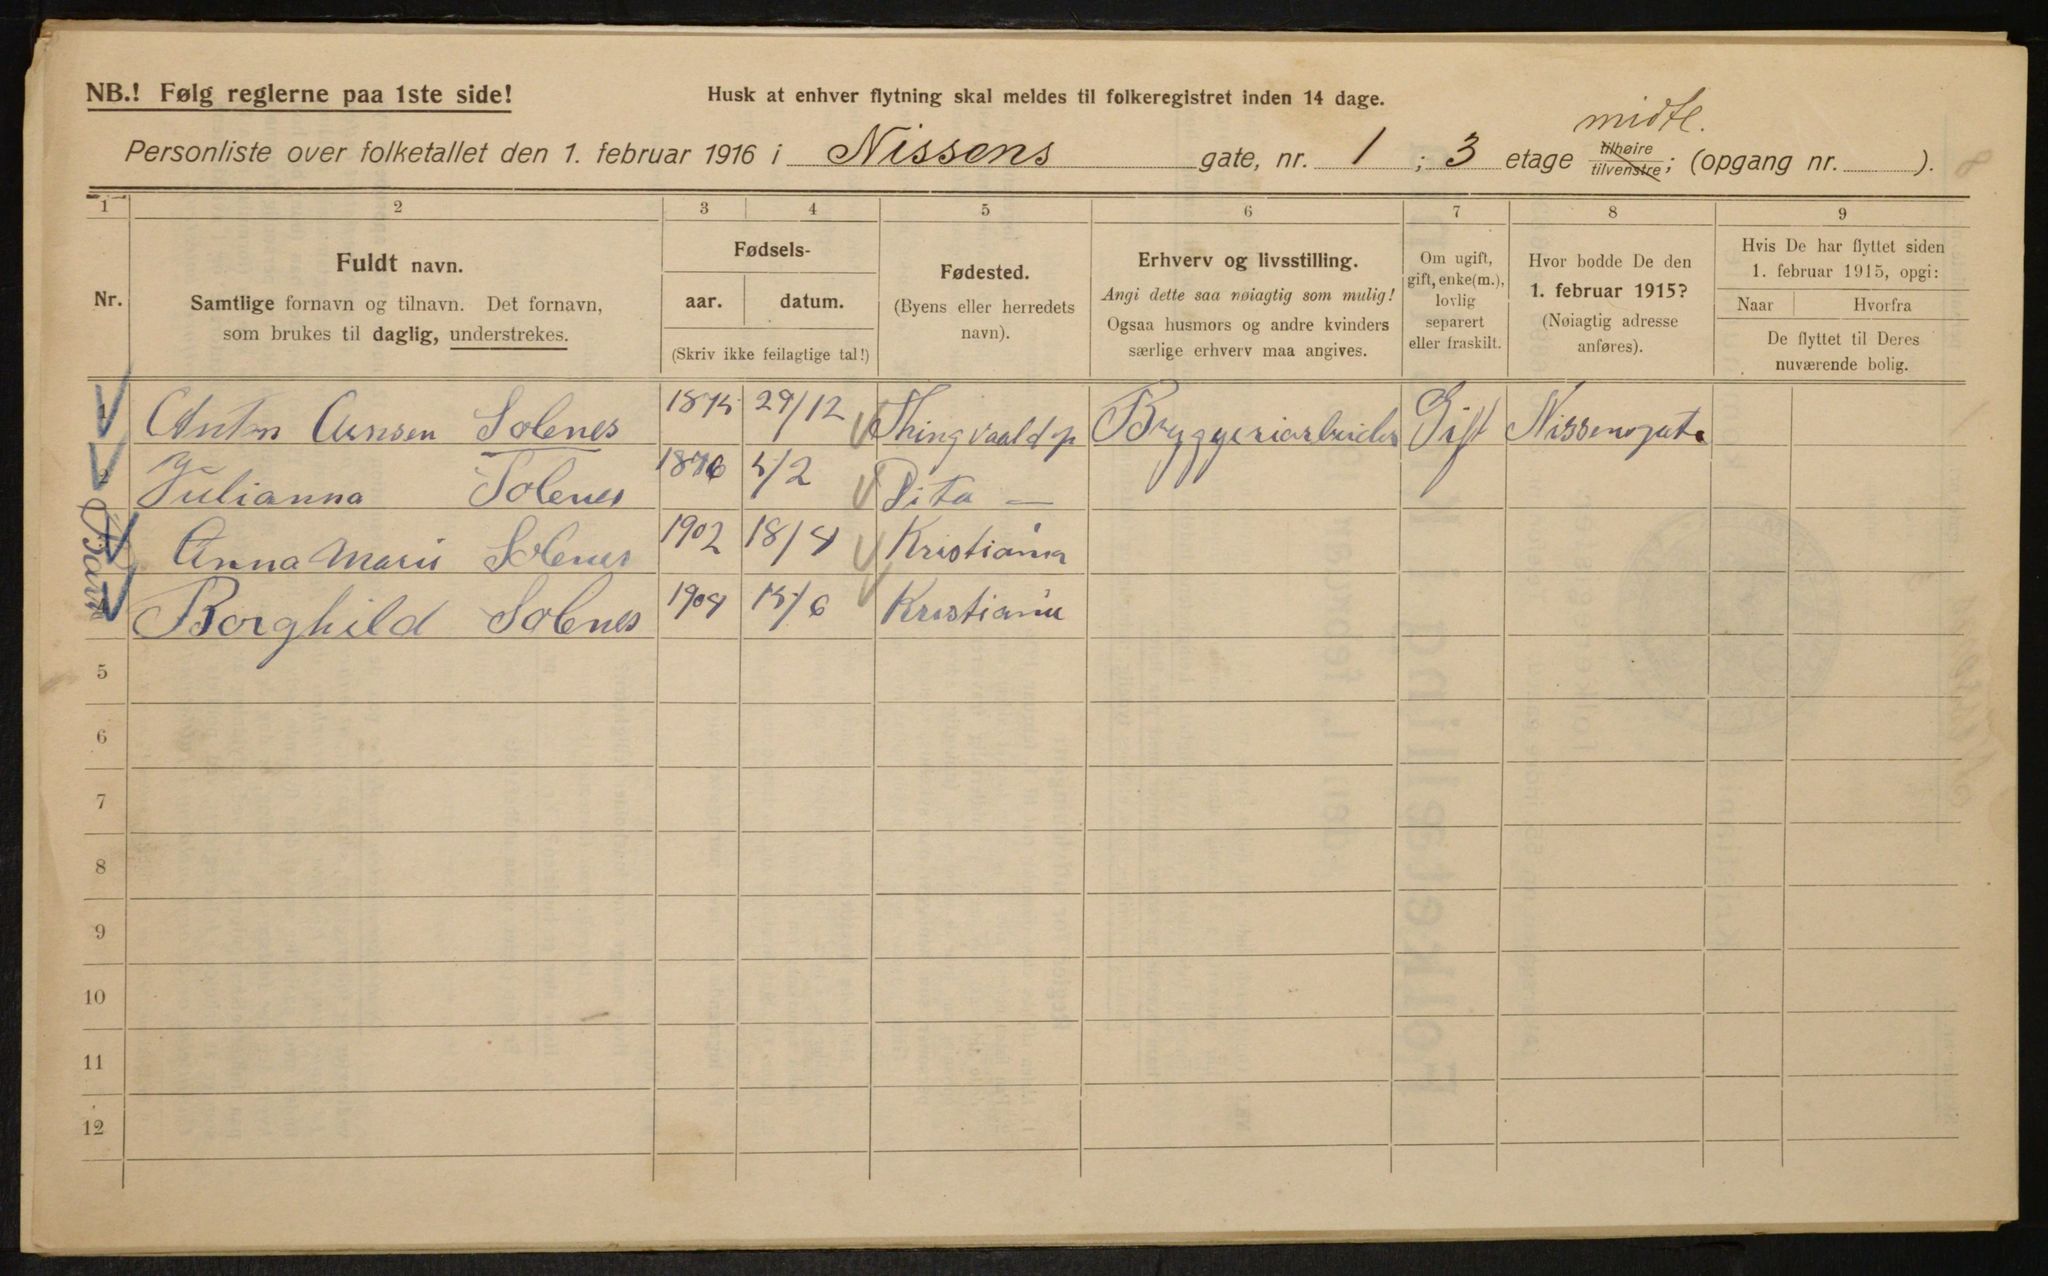 NB.! Følg reglerne paa 1ste side!
Husk at enhver flytning skal meldes til folkeregistret inden 14 dage.
midte.
Personliste over folketallet den 1. februar 1916 i Nissens gate, nr. 1 ; 3 etage tilhøire tilvenstre ; (opgang nr. ).
1 2 3 4 5 6 7 8 9
Nr.
Fuldt navn.
Samtlige fornavn og tilnavn. Det fornavn,
som brukes til daglig, understrekes.
Fødsels-
aar. datum.
(Skriv ikke feilagtige tal!)
Fødested.
(Byens eller herredets
navn).
Erhverv og livsstilling.
Angi dette saa nøiagtig som mulig!
Ogsaa husmors og andre kvinders
særlige erhverv maa angives.
Om ugift,
gift, enke(m.),
lovlig
separert
eller fraskilt.
Hvor bodde De den
1. februar 1915?
(Nøiagtig adresse
anføres).
Hvis De har flyttet siden
1. februar 1915, opgi:
Naar Hvorfra
De flyttet til Deres
nuværende bolig.
Anton Arnsen Solenes 1875 29/12 Thingvaald p Bryggeriarbeider Gift Nissensgate
Julianna Solenes 1876 5/2 Dito —
Anna Marie Solenes 1902 18/4 Kristiania
Borghild Solenes 1904 15/6 Kristiania
Barn
5
6
7
8
9
10
11
12